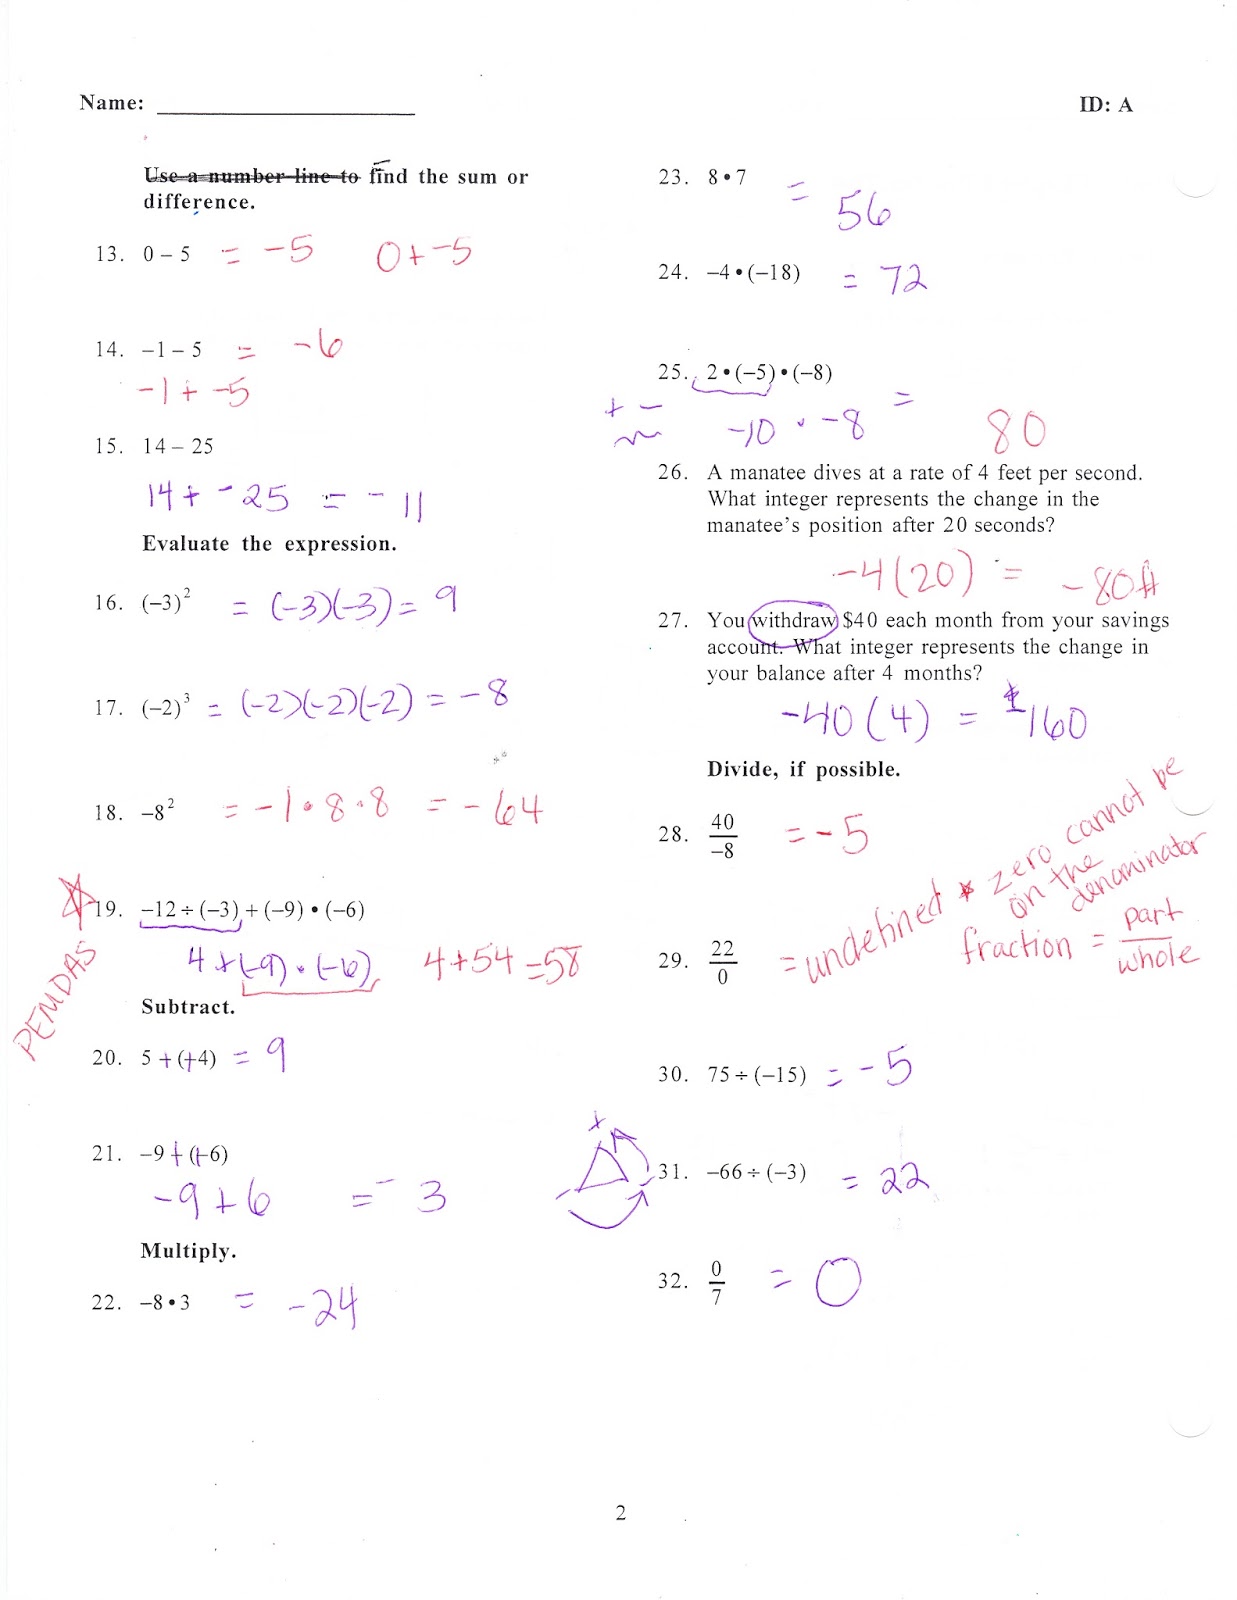 Name: ____________________
ID: A
Use a number line to find the sum or
difference.
13. 0 – 5 = -5 0 + -5
14. –1 – 5 = -6
-1 + -5
15. 14 – 25
14 + -25 = -11
Evaluate the expression.
16. (–3)² = (-3)(-3) = 9
17. (–2)³ = (-2)(-2)(-2) = -8
18. –8² = -1 • 8 • 8 = -64
19. –12 ÷ (–3) + (–9) • (–6)
4 + (-9) • (-6) 4 + 54 = 58
PEMDAS
Subtract.
20. 5 + (+4) = 9
21. –9 + (+6)
-9 + 6 = -3
Multiply.
22. –8 • 3 = -24
23. 8 • 7 = 56
24. –4 • (–18) = 72
25. 2 • (–5) • (–8) =
+ - -10 • -8 80
26. A manatee dives at a rate of 4 feet per second.
What integer represents the change in the
manatee's position after 20 seconds?
-4(20) = -80ft
27. You withdraw $40 each month from your savings
account. What integer represents the change in
your balance after 4 months?
-40(4) = 160
Divide, if possible.
28. 40/–8 = -5
29. 22/0 = undefined * zero cannot be
on the
denominator
fraction = part/whole
30. 75 ÷ (–15) = -5
+
- -
31. –66 ÷ (–3) = 22
32. 0/7 = 0
2